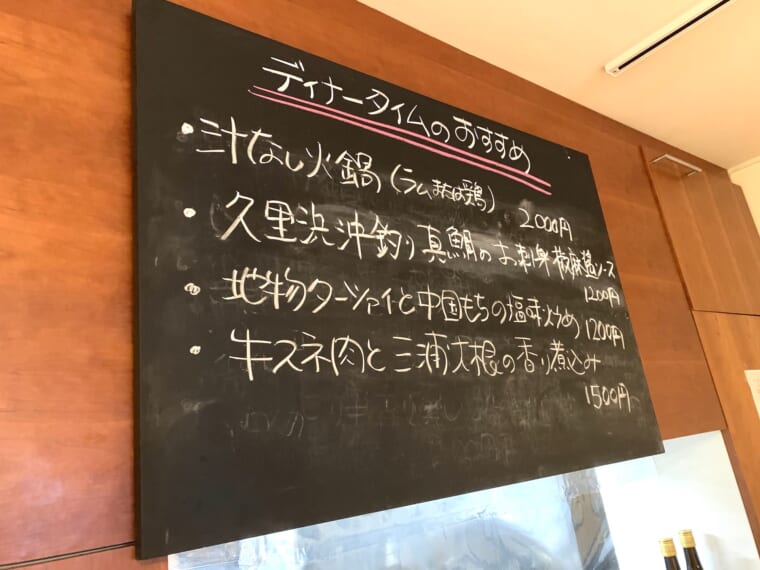 ディナータイムのおすすめ
・汁なし火鍋(ラムまたは鶏) 2000円
・久里浜沖釣り真鯛のお刺身 椒麻醤ソース
1200円
・地物ターツァイと中国もちの塩味炒め 1200円
・牛スネ肉と三浦大根の香り煮込み
1500円